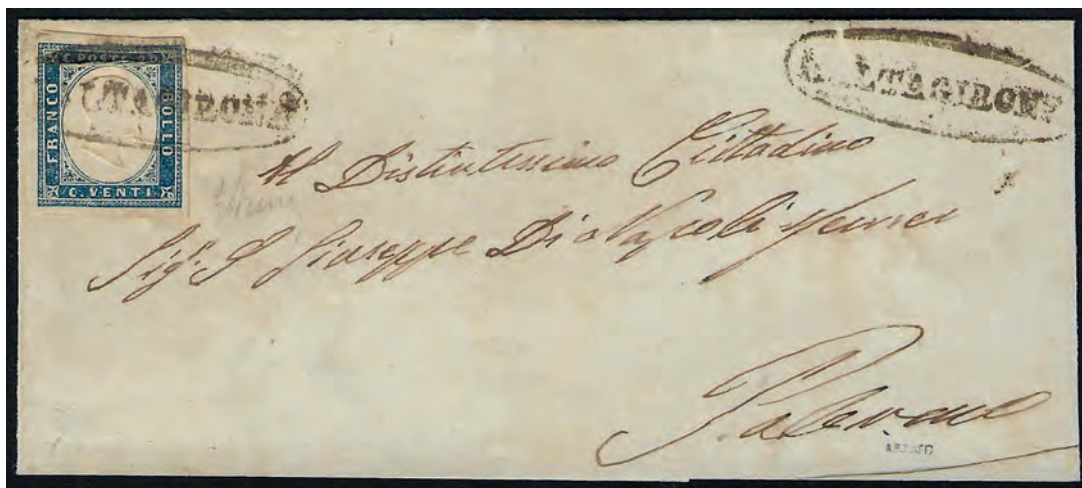 C. POSTE 20
FRANCO
BOLLO
C. VENTI
LTAGIRONE
LTAGIRONE
Al Distintissimo Cittadino
Sigr. D. Giuseppe Di Napoli
Palermo